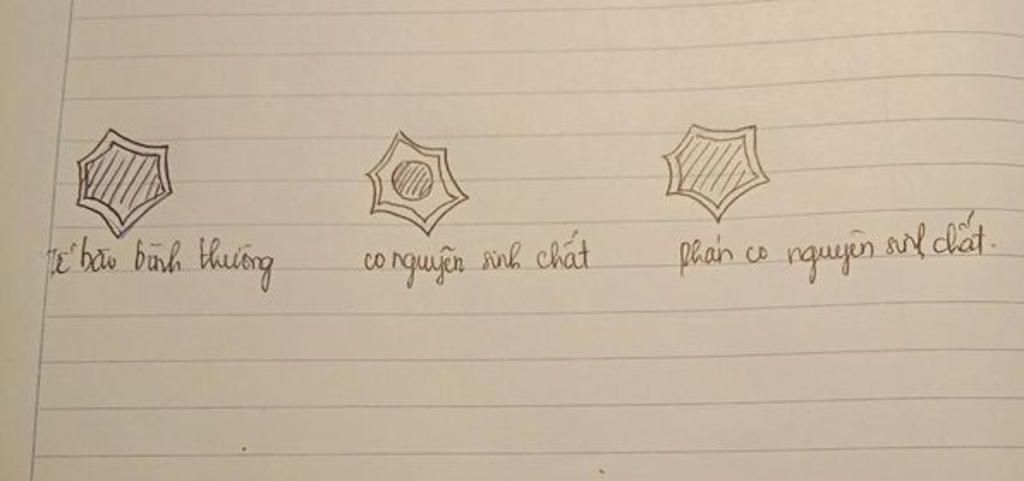 Tế bào bình thường
co nguyên sinh chất
phản co nguyên sinh chất.